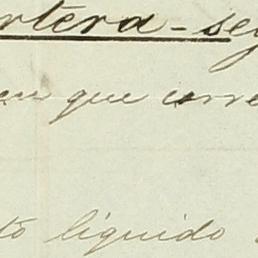 rtera - seg
en que corre
to liquido